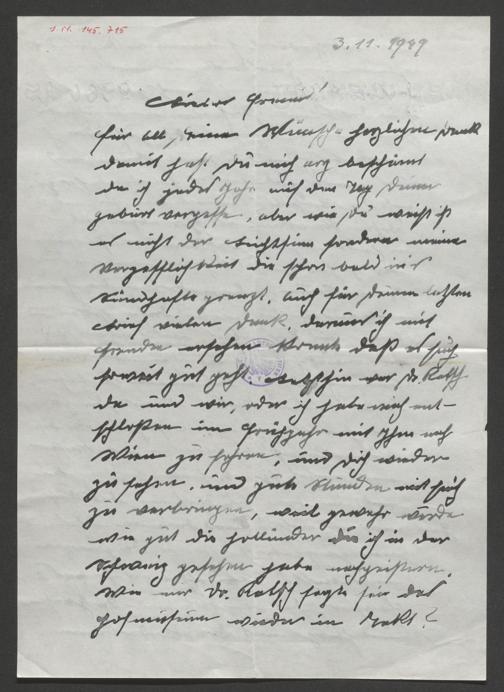 I.N. 145.715
3.11.1949
Lieber Freund!
Für all, Deine Wünsche herzlichen Dank
damit hast Du mich arg beschämt
da ich jedes Jahr auf den Tag Deiner
Geburt vergesse, aber wie Du weist ist
es nicht der Leichtsinn sondern meine
Vergesslichkeit die schon bald ins
Sündhafte grenzt. Auch für Deinen letzten
Brief vielen Dank, daraus ich mit
Freuden ersehen konnte daß es Euch
soweit gut geht. Letzthin war Dr.
da und wir, oder ich habe mich ent-
schloßen im Frühjahr mit Ihm nach
Wien zu fahren, und Dich wieder
zu sehen, und gute Stunden mit Euch
zu verbringen, weil gewahr werde
wie gut die Holländer die ich in der
Schweiz gesehen habe
Wie mir Dr. sagte sei das
wieder in